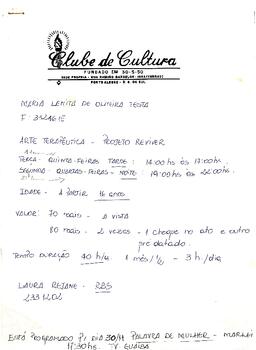 Clube de Cultura
FUNDADO EM 30-5-50
PORTO ALEGRE - R. G. DO SUL
MARIA LENITA DE OLIVEIRA
F:
ARTE TERAPÊUTICA - PROJETO REVIVER
TERÇA - QUINTA-FEIRAS TARDE: 14:00hs ÀS 17:00hs.
SEGUNDA - QUARTAS-FEIRAS - NOITE: 19:00hs ÀS 22:00hs.
IDADE - A PARTIR 16 anos
VALOR: 70 reais - À VISTA
80 reais - 2 vezes - 1 cheque no ato e outro
pré datado.
TEMPO DURAÇÃO 40 h/a 1 mês/ - 3h/dia
LAURA REJANE - RBS
2331202
ESTÁ PROGRAMADO P/ DIA 30/11 PALAVRA DE MULHER -
17:30hs. TV. GUAÍBA